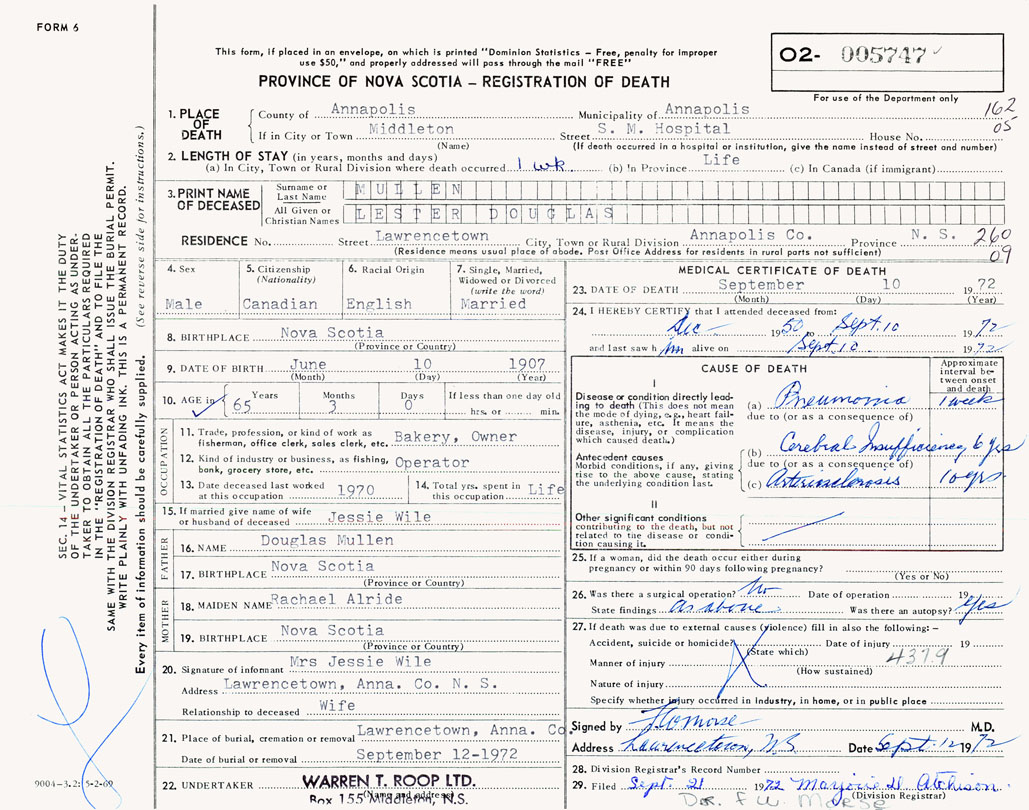 FORM 6
This form, if placed in an envelope, on which is printed "Dominion Statistics – Free, penalty for improper
use $50," and properly addressed will pass through the mail "FREE"
PROVINCE OF NOVA SCOTIA – REGISTRATION OF DEATH
02- 005747
For use of the Department only
162
05
1. PLACE OF DEATH
County of Annapolis Municipality of Annapolis
If in City or Town Middleton Street S. M. Hospital House No.
(Name) (If death occurred in a hospital or institution, give the name instead of street and number)
2. LENGTH OF STAY (in years, months and days)
(a) In City, Town or Rural Division where death occurred 1 wk (b) In Province Life (c) In Canada (if immigrant)
3. PRINT NAME OF DECEASED
Surname or Last Name MULLEN
All Given or Christian Names LESTER DOUGLAS
RESIDENCE No. Street Lawrencetown City, Town or Rural Division Annapolis Co. Province N. S. 260
(Residence means usual place of abode. Post Office Address for residents in rural parts not sufficient) 09
4. Sex
Male
5. Citizenship
(Nationality)
Canadian
6. Racial Origin
English
7. Single, Married,
Widowed or Divorced
(write the word)
Married
8. BIRTHPLACE Nova Scotia
(Province or Country)
9. DATE OF BIRTH June 10 1907
(Month) (Day) (Year)
10. AGE in 65 Years Months 3 Days 0 If less than one day old
hrs. or min.
OCCUPATION
11. Trade, profession, or kind of work as
fisherman, office clerk, sales clerk, etc. Bakery, Owner
12. Kind of industry or business, as fishing,
bank, grocery store, etc. Operator
13. Date deceased last worked
at this occupation 1970
14. Total yrs. spent in
this occupation Life
15. If married give name of wife
or husband of deceased Jessie Wile
FATHER
16. NAME Douglas Mullen
17. BIRTHPLACE Nova Scotia
(Province or Country)
MOTHER
18. MAIDEN NAME Rachael Alride
19. BIRTHPLACE Nova Scotia
(Province or Country)
20. Signature of informant Mrs Jessie Wile
Address Lawrencetown, Anna. Co. N. S.
Relationship to deceased Wife
21. Place of burial, cremation or removal Lawrencetown, Anna. Co.
Date of burial or removal September 12-1972
22. UNDERTAKER WARREN T. ROOP LTD.
(Name and address)
Box 155 Middleton, N.S.
MEDICAL CERTIFICATE OF DEATH
23. DATE OF DEATH September 10 1972
(Month) (Day) (Year)
24. I HEREBY CERTIFY that I attended deceased from:
Dec – 1950 to Sept. 10 1972
and last saw him alive on Sept. 10 1972
CAUSE OF DEATH
Approximate
interval be-
tween onset
and death
I
Disease or condition directly lead-
ing to death (This does not mean
the mode of dying, e.g., heart fail-
ure, asthenia, etc. It means the
disease, injury, or complication
which caused death.)
(a) Pneumonia 1 week
due to (or as a consequence of)
Antecedent causes
Morbid conditions, if any, giving
rise to the above cause, stating
the underlying condition last.
(b) Cerebral Insufficiency 6 yrs
due to (or as a consequence of)
(c) Arteriosclerosis 10 yrs
II
Other significant conditions
contributing to the death, but not
related to the disease or condi-
tion causing it.
25. If a woman, did the death occur either during
pregnancy or within 90 days following pregnancy?
(Yes or No)
26. Was there a surgical operation? No Date of operation 19
State findings as above Was there an autopsy? Yes
27. If death was due to external causes (violence) fill in also the following: –
Accident, suicide or homicide? Date of injury 19
(State which)
4379
Manner of injury
(How sustained)
Nature of injury
Specify whether injury occurred in industry, in home, or in public place
Signed by F W Morse M.D.
Address Lawrencetown, NS Date Sept. 12 1972
28. Division Registrar's Record Number
29. Filed Sept. 21 1972 Marjorie H Atchison
(Division Registrar)
Dr. F W. Morse
SEC. 14 – VITAL STATISTICS ACT MAKES IT THE DUTY
OF THE UNDERTAKER OR PERSON ACTING AS UNDER-
TAKER TO OBTAIN ALL THE PARTICULARS REQUIRED
IN THE "REGISTRATION OF DEATH" AND TO FILE THE
SAME WITH THE DIVISION REGISTRAR WHO SHALL ISSUE THE BURIAL PERMIT.
WRITE PLAINLY WITH UNFADING INK. THIS IS A PERMANENT RECORD.
Every item of information should be carefully supplied. (See reverse side for instructions.)
9004–3.2: 5-2-69